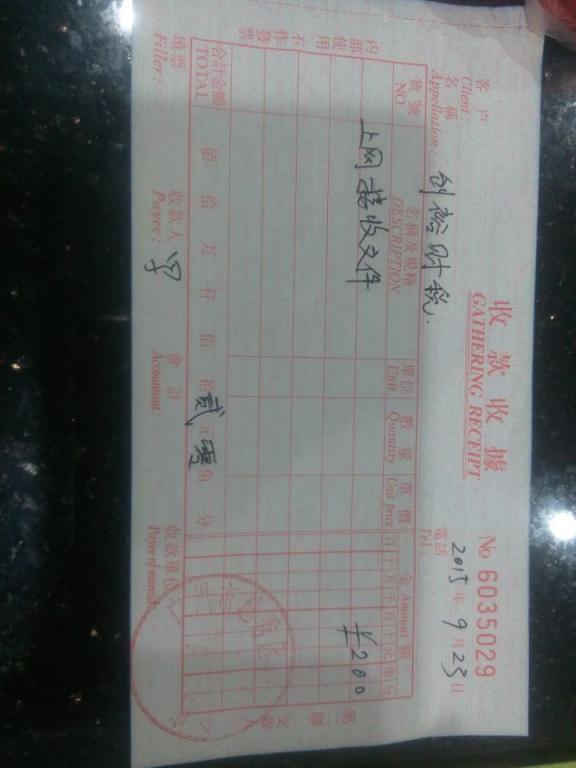 收款收據
GATHERING RECEIPT
No 6035029
客户名稱 创裕财税
Client: Appellation:
電話 Tel:
2015年9月23日
貨號 NO
名稱及規格 DESCRIPTION
單位 Unit
數量 Quantity
單價 Unit price
金Amount額
百十万千百十元角分
上网接收文件
¥200
内部使用 不作發票
第二聯 交款人
合計金額 TOTAL
佰拾万仟佰拾贰元零角分
填票 Filler:
收款人 Payee:
會計 Accountant:
收款單位